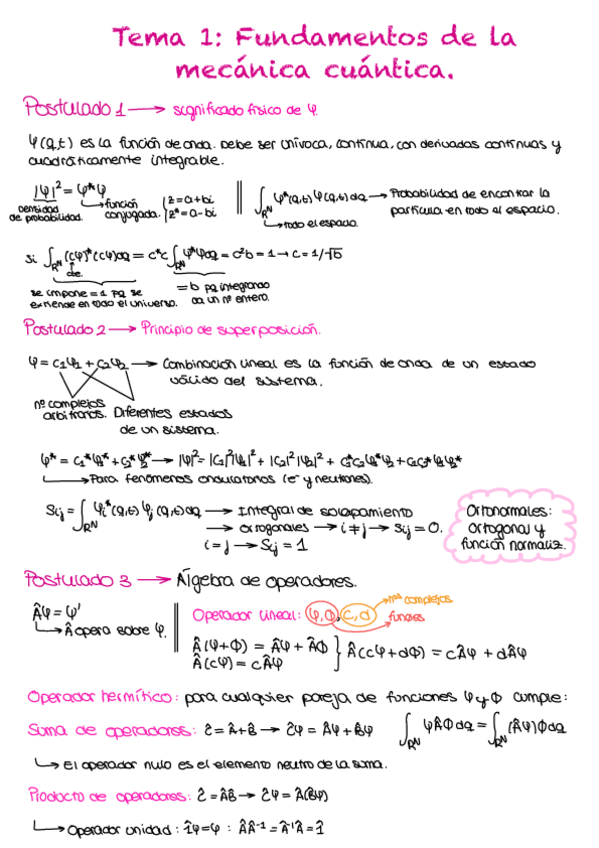 Tema 1: Fundamentos de la
mecánica cuántica.
Postulado 1 → significado físico de Ψ.
Ψ(q,t) es la función de onda. Debe ser unívoca, continua, con derivadas continuas y
cuadráticamente integrable.
|Ψ|² = Ψ*Ψ
densidad de probabilidad.
función conjugada.
z = a+bi
z* = a-bi
∫_RN Ψ*(q,t) Ψ(q,t) dq → Probabilidad de encontrar la
partícula en todo el espacio.
todo el espacio.
Si ∫_RN (cΨ)*(cΨ)dq = c*c ∫_RN Ψ*Ψdq = c²b = 1 → c = 1/√b
de
se impone = 1 pq se
extiende en todo el universo.
= b pq integrando
da un nº entero.
Postulado 2 → Principio de superposición.
Ψ = c₁Ψ₁ + c₂Ψ₂ → Combinación lineal es la función de onda de un estado
válido del sistema.
nº complejos
arbitrarios.
Diferentes estados
de un sistema.
Ψ* = c₁*Ψ₁* + c₂*Ψ₂* → |Ψ|² = |c₁|²|Ψ₁|² + |c₂|²|Ψ₂|² + c₁*c₂Ψ₁*Ψ₂ + c₁c₂*Ψ₁Ψ₂*
Para fenómenos ondulatorios (e⁻ y neutrones).
Sij = ∫_RN Ψi*(q,t) Ψj(q,t)dq → Integral de solapamiento
→ Ortogonales → i ≠ j → Sij = 0.
i = j → Sij = 1
Ortonormales:
ortogonal y
función normaliz.
Postulado 3 → Álgebra de operadores.
ÂΨ = Ψ'
 opera sobre Ψ.
Operador lineal: Ψ, Φ, c, d
nos complejos
Â(Ψ+Φ) = ÂΨ + ÂΦ
Â(cΨ) = cÂΨ
Â(cΨ+dΦ) = cÂΨ + dÂΨ
Operador hermítico: para cualquier pareja de funciones Ψ y Φ cumple:
Suma de operadores: Ĉ = Â+B̂ → ĈΨ = ÂΨ + B̂Ψ
∫_RN ΨÂΦdq = ∫_RN (ÂΨ)Φdq
El operador nulo es el elemento neutro de la suma.
Producto de operadores: Ĉ = ÂB̂ → ĈΨ = Â(B̂Ψ)
Operador unidad: 1̂Ψ = Ψ : ÂÂ⁻¹ = Â⁻¹Â = 1̂